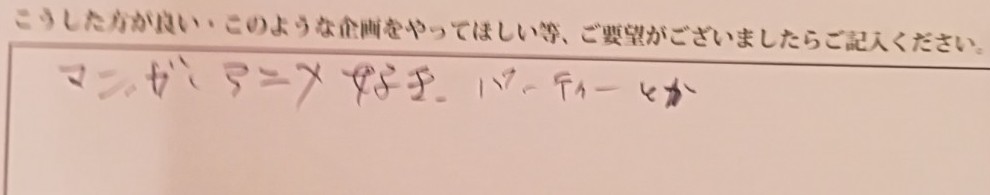 こうした方が良い・このような企画をやってほしい等、ご要望がございましたらご記入ください。
マンガ、アニメ好き パーティーとか